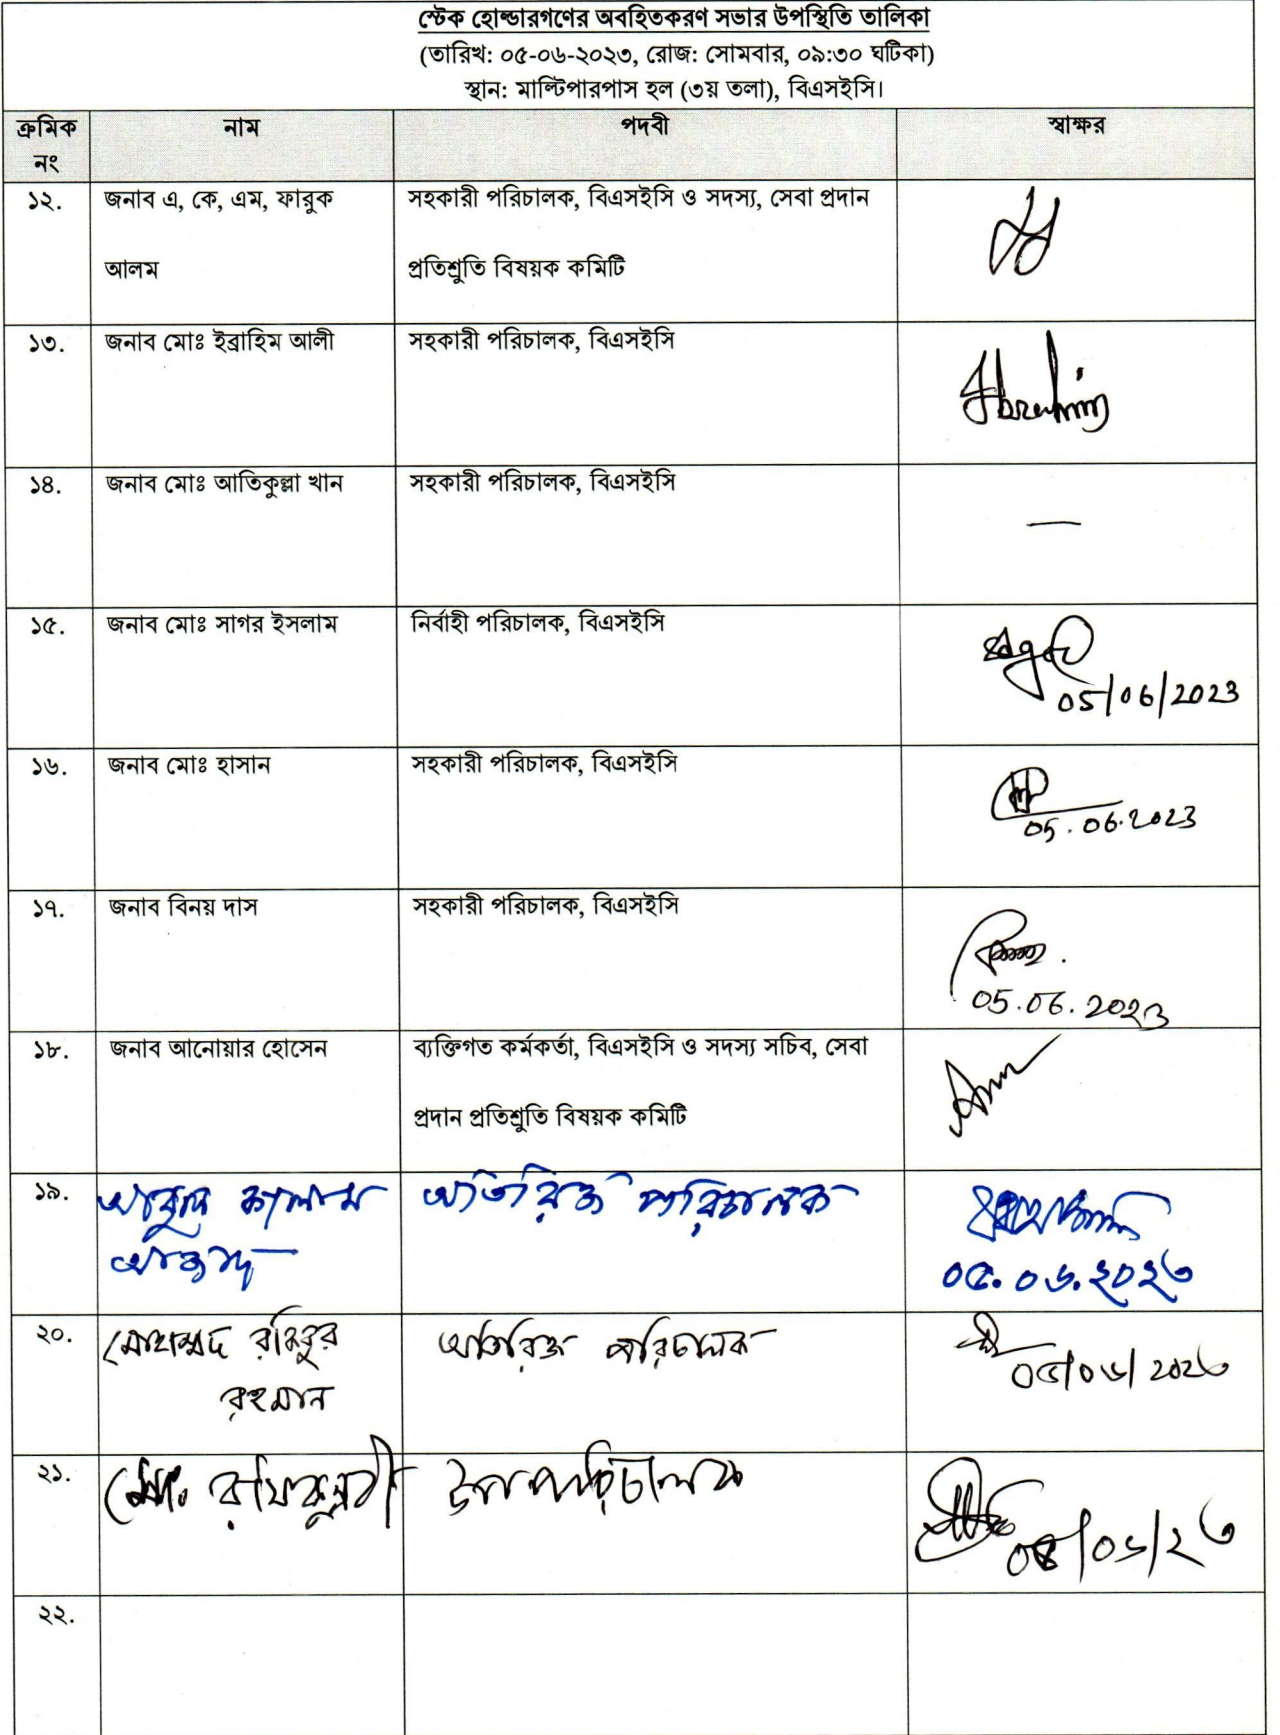 স্টেক হোল্ডারগণের অবহিতকরণ সভার উপস্থিতি তালিকা
(তারিখ: ০৫-০৬-২০২৩, রোজ: সোমবার, ০৯:৩০ ঘটিকা)
স্থান: মাল্টিপারপাস হল (৩য় তলা), বিএসইসি।
ক্রমিক নাম পদবী স্বাক্ষর
নং
১২. জনাব এ, কে, এম, ফারুক সহকারী পরিচালক, বিএসইসি ও সদস্য, সেবা প্রদান
আলম প্রতিশ্রুতি বিষয়ক কমিটি
১৩. জনাব মোঃ ইব্রাহিম আলী সহকারী পরিচালক, বিএসইসি
Ibrahim
১৪. জনাব মোঃ আতিকুল্লা খান সহকারী পরিচালক, বিএসইসি
—
১৫. জনাব মোঃ সাগর ইসলাম নির্বাহী পরিচালক, বিএসইসি
05/06/2023
১৬. জনাব মোঃ হাসান সহকারী পরিচালক, বিএসইসি
05.06.2023
১৭. জনাব বিনয় দাস সহকারী পরিচালক, বিএসইসি
05.06.2023
১৮. জনাব আনোয়ার হোসেন ব্যক্তিগত কর্মকর্তা, বিএসইসি ও সদস্য সচিব, সেবা
প্রদান প্রতিশ্রুতি বিষয়ক কমিটি
১৯. আবুল কালাম অতিরিক্ত পরিচালক
আজাদ ০৫.০৬.২০২৩
২০. মোহাম্মদ রকিবুর অতিরিক্ত পরিচালক
রহমান ০৫/০৬/২০২৩
২১. মোঃ রফিকুন্নবী উপপরিচালক
০৫/০৬/২৩
২২.